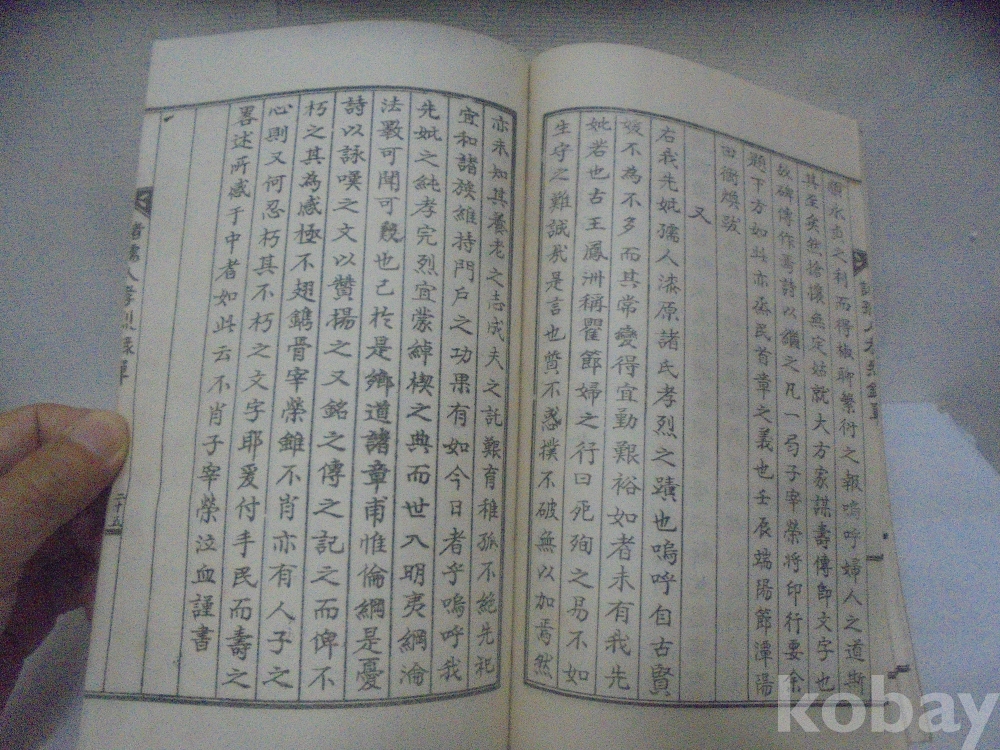 顯水直之利而得椒聊繁衍之報嗚呼婦人之道斯
其至矣然搶攘無定姑就大方家謀壽傳卽文字也
故碑傳作焉詩以繼之凡一弓子宰榮將印行要余
題下方如此亦烝民首章之義也壬辰端陽節潭陽
田衡煥跋
又
右我先妣孺人漆原諸氏孝烈之蹟也嗚呼自古賢
媛不為不多而其常變得宜勤艱裕如者未有我先
妣若也古王鳳洲稱瞿節婦之行曰死殉之易不如
生守之難誠哉是言也贄不惑撲不破無以加焉然
亦未知其養老之志成夫之託艱育稚孤不絶先祀
宜和諸族維持門戶之功果有如今日者乎嗚呼我
先妣之純孝完烈宜蒙綽楔之典而世入明夷綱淪
法斁可聞可幾也已於是鄕道諸章甫惟倫綱是憂
詩以詠嘆之文以贊揚之又銘之傳之記之而俾不
朽之其為感極不翅鐫骨宰榮雖不肖亦有人子之
心則又何忍朽其不朽之文字耶爰付手民而壽之
畧述所感于中者如此云不肖子宰榮泣血謹書
諸孺人孝烈錄單
二十五
kobay